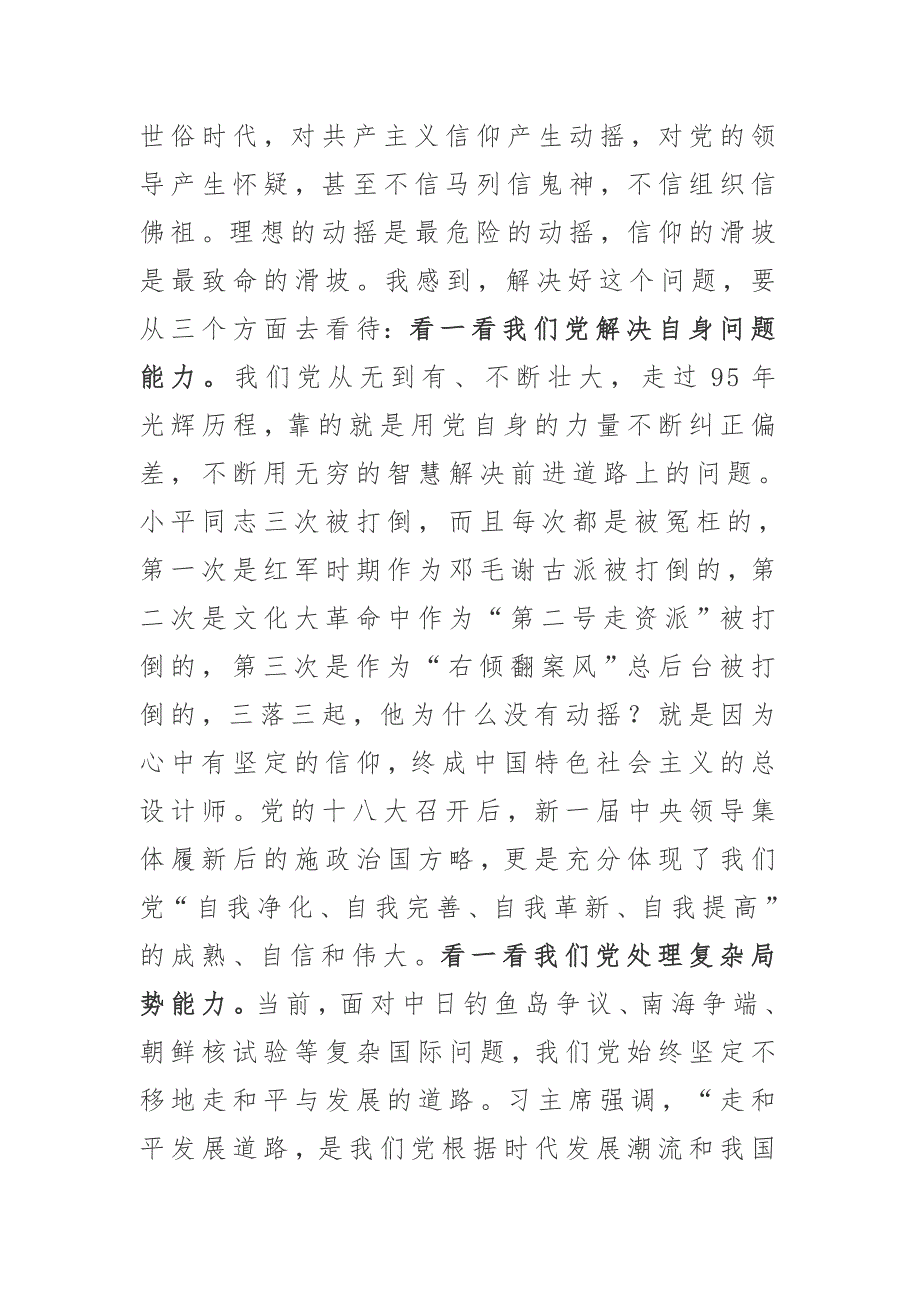 世俗时代，对共产主义信仰产生动摇，对党的领
导产生怀疑，甚至不信马列信鬼神，不信组织信
佛祖。理想的动摇是最危险的动摇，信仰的滑坡
是最致命的滑坡。我感到，解决好这个问题，要
从三个方面去看待：看一看我们党解决自身问题
能力。我们党从无到有、不断壮大，走过 95 年
光辉历程，靠的就是用党自身的力量不断纠正偏
差，不断用无穷的智慧解决前进道路上的问题。
小平同志三次被打倒，而且每次都是被冤枉的，
第一次是红军时期作为邓毛谢古派被打倒的，第
二次是文化大革命中作为“第二号走资派”被打
倒的，第三次是作为“右倾翻案风”总后台被打
倒的，三落三起，他为什么没有动摇？就是因为
心中有坚定的信仰，终成中国特色社会主义的总
设计师。党的十八大召开后，新一届中央领导集
体履新后的施政治国方略，更是充分体现了我们
党“自我净化、自我完善、自我革新、自我提高”
的成熟、自信和伟大。看一看我们党处理复杂局
势能力。当前，面对中日钓鱼岛争议、南海争端、
朝鲜核试验等复杂国际问题，我们党始终坚定不
移地走和平与发展的道路。习主席强调，“走和
平发展道路，是我们党根据时代发展潮流和我国